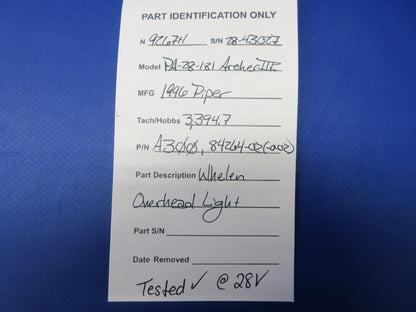 PART IDENTIFICATION ONLY
N 9267H S/N 28-43027
Model PA-28-181 Archer III
MFG 1996 Piper
Tach/Hobbs 3,394.7
P/N A300, 84264-02(-002)
Part Description Whelen
Overhead Light
Part S/N
Date Removed
Tested ✓ @ 28V